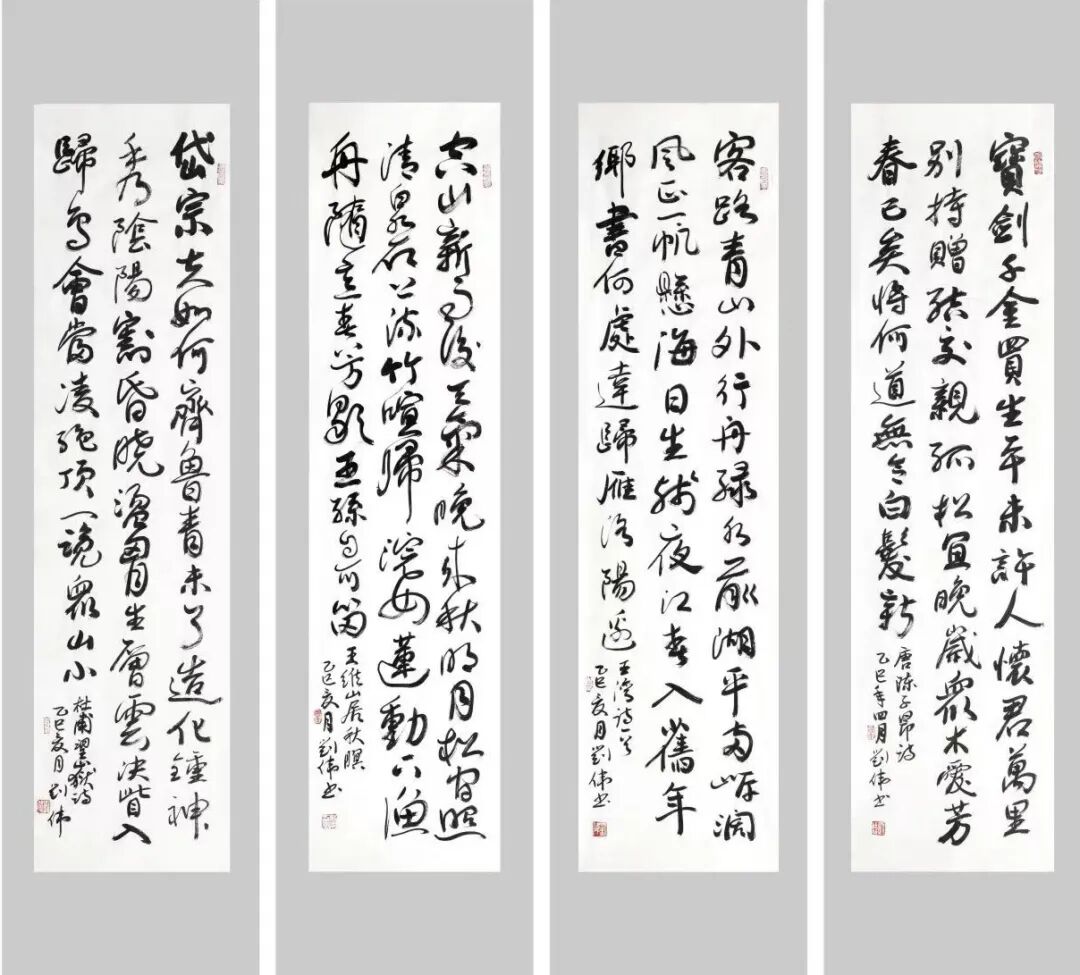 寶劍千金買生平未許人懷君萬里
别持贈結交親孤松宜晚歲衆木愛芳
春已矣將何道無令白髮新
唐陳子昂詩
乙巳年四月劉偉書
客路青山外行舟緑水前湖平兩岸闊
風正一帆懸海日生殘夜江春入舊年
鄉書何處達歸雁洛陽邊
王灣詩一首
乙巳夏月劉偉書
空山新雨後天氣晚來秋明月松間照
清泉石上流竹喧歸浣女蓮動下漁
舟隨意春芳歇王孫自可留
王維山居秋暝
乙巳夏月劉偉書
岱宗夫如何齊魯青未了造化鍾神
秀陰陽割昏曉盪胷生層雲决眥入
歸鳥會當凌絶頂一覽衆山小
杜甫望嶽詩
乙巳夏月劉偉